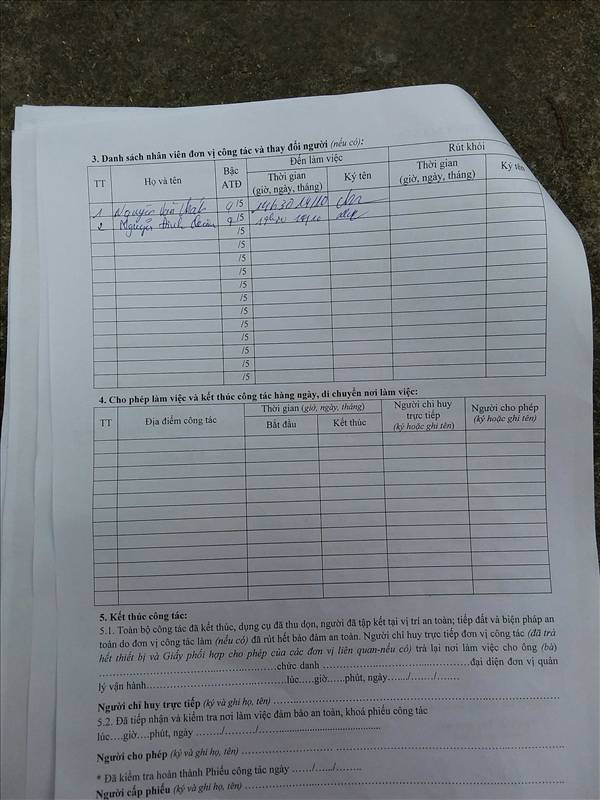 3. Danh sách nhân viên đơn vị công tác và thay đổi người (nếu có):
TT Họ và tên Bậc ATĐ Đến làm việc Rút khỏi
Thời gian (giờ, ngày, tháng) Ký tên Thời gian (giờ, ngày, tháng) Ký tên
1 Nguyễn /5 14h30 14/10
2 Nguyễn Đình /5
/5
/5
/5
/5
/5
/5
/5
/5
/5
/5
/5
/5
4. Cho phép làm việc và kết thúc công tác hàng ngày, di chuyển nơi làm việc:
TT Địa điểm công tác Thời gian (giờ, ngày, tháng) Người chỉ huy trực tiếp (ký hoặc ghi tên) Người cho phép (ký hoặc ghi tên)
Bắt đầu Kết thúc
5. Kết thúc công tác:
5.1. Toàn bộ công tác đã kết thúc, dụng cụ đã thu dọn, người đã tập kết tại vị trí an toàn; tiếp đất và biện pháp an
toàn do đơn vị công tác làm (nếu có) đã rút hết bảo đảm an toàn. Người chỉ huy trực tiếp đơn vị công tác (đã trả
hết thiết bị và Giấy phối hợp cho phép của các đơn vị liên quan-nếu có) trả lại nơi làm việc cho ông (bà)
.....chức danh.....đại diện đơn vị quản
lý vận hành.....lúc....giờ.....phút, ngày....../....../......
Người chỉ huy trực tiếp (ký và ghi họ, tên) .....
5.2. Đã tiếp nhận và kiểm tra nơi làm việc đảm bảo an toàn, khoá phiếu công tác
lúc....giờ....phút, ngày ....../....../......
Người cho phép (ký và ghi họ, tên) .....
* Đã kiểm tra hoàn thành Phiếu công tác ngày ....../....../......
Người cấp phiếu (ký và ghi họ, tên) .....